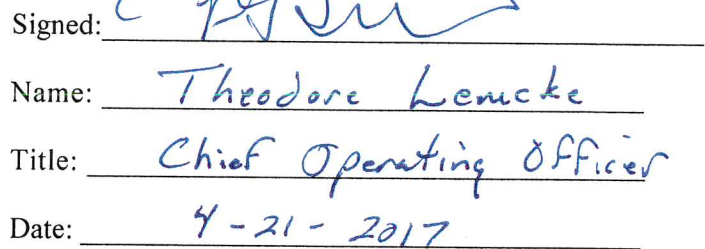 Signed:
Name: Theodore Lemcke
Title: Chief Operating Officer
Date: 4-21-2017